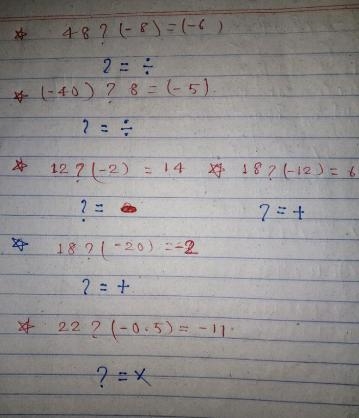 ☆ 48 ? (-8) = (-6)
? = ÷
☆ (-40) ? 8 = (-5).
? = ÷
☆ 12 ? (-2) = 14 ☆ 18 ? (-12) = 6
? = ? = +
☆ 18 ? (-20) = -2
? = +
☆ 22 ? (-0.5) = -11.
? = ×